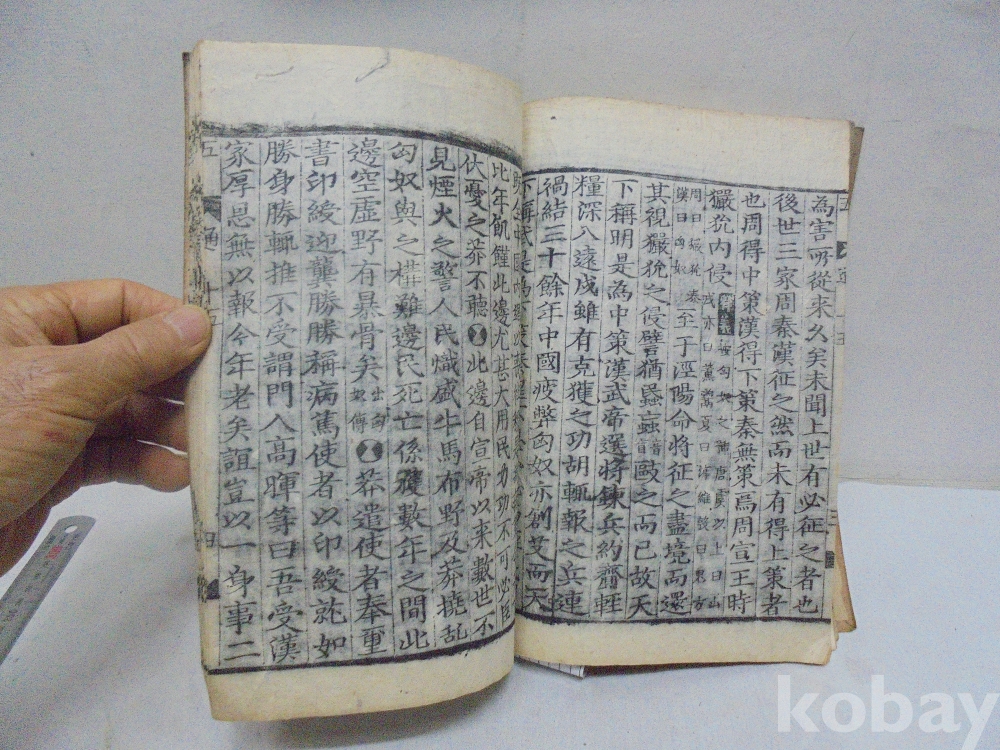 為害所從來久矣未聞上世有必征之者也
後世三家周秦漢征之然而未有得上策者
也周得中策漢得下策秦無策焉周宣王時
獫狁內侵匈奴之號唐虞以上曰山
戎亦曰薰鬻夏曰淳維殷曰鬼方
周曰獫狁秦
漢曰凶奴至于涇陽命將征之盡境而還
其視獫狁之侵譬猶蟲蝱音盲敺之而已故天
下稱明是為中策漢武帝選將鍊兵約齎輕
糧深入遠戍雖有克獲之功胡輒報之兵連
禍結三十餘年中國疲弊匈奴亦創艾而天
下稱武是為下策秦
比年飢饉北邊尤甚大用民力功不可必臣
伏憂之莽不聽北邊自宣帝以来數世不
見煙火之警人民熾盛牛馬布野及莽撓乱
匈奴與之構難邊民死亡係獲數年之間北
邊空虛野有暴骨矣出匈
奴傳莽遣使者奉璽
書印綬迎龔勝勝稱病篤使者以印綬就如
勝身勝輒推不受謂門人高暉等曰吾受漢
家厚恩無以報今年老矣誼豈以一身事二
五 通 十五
kobay